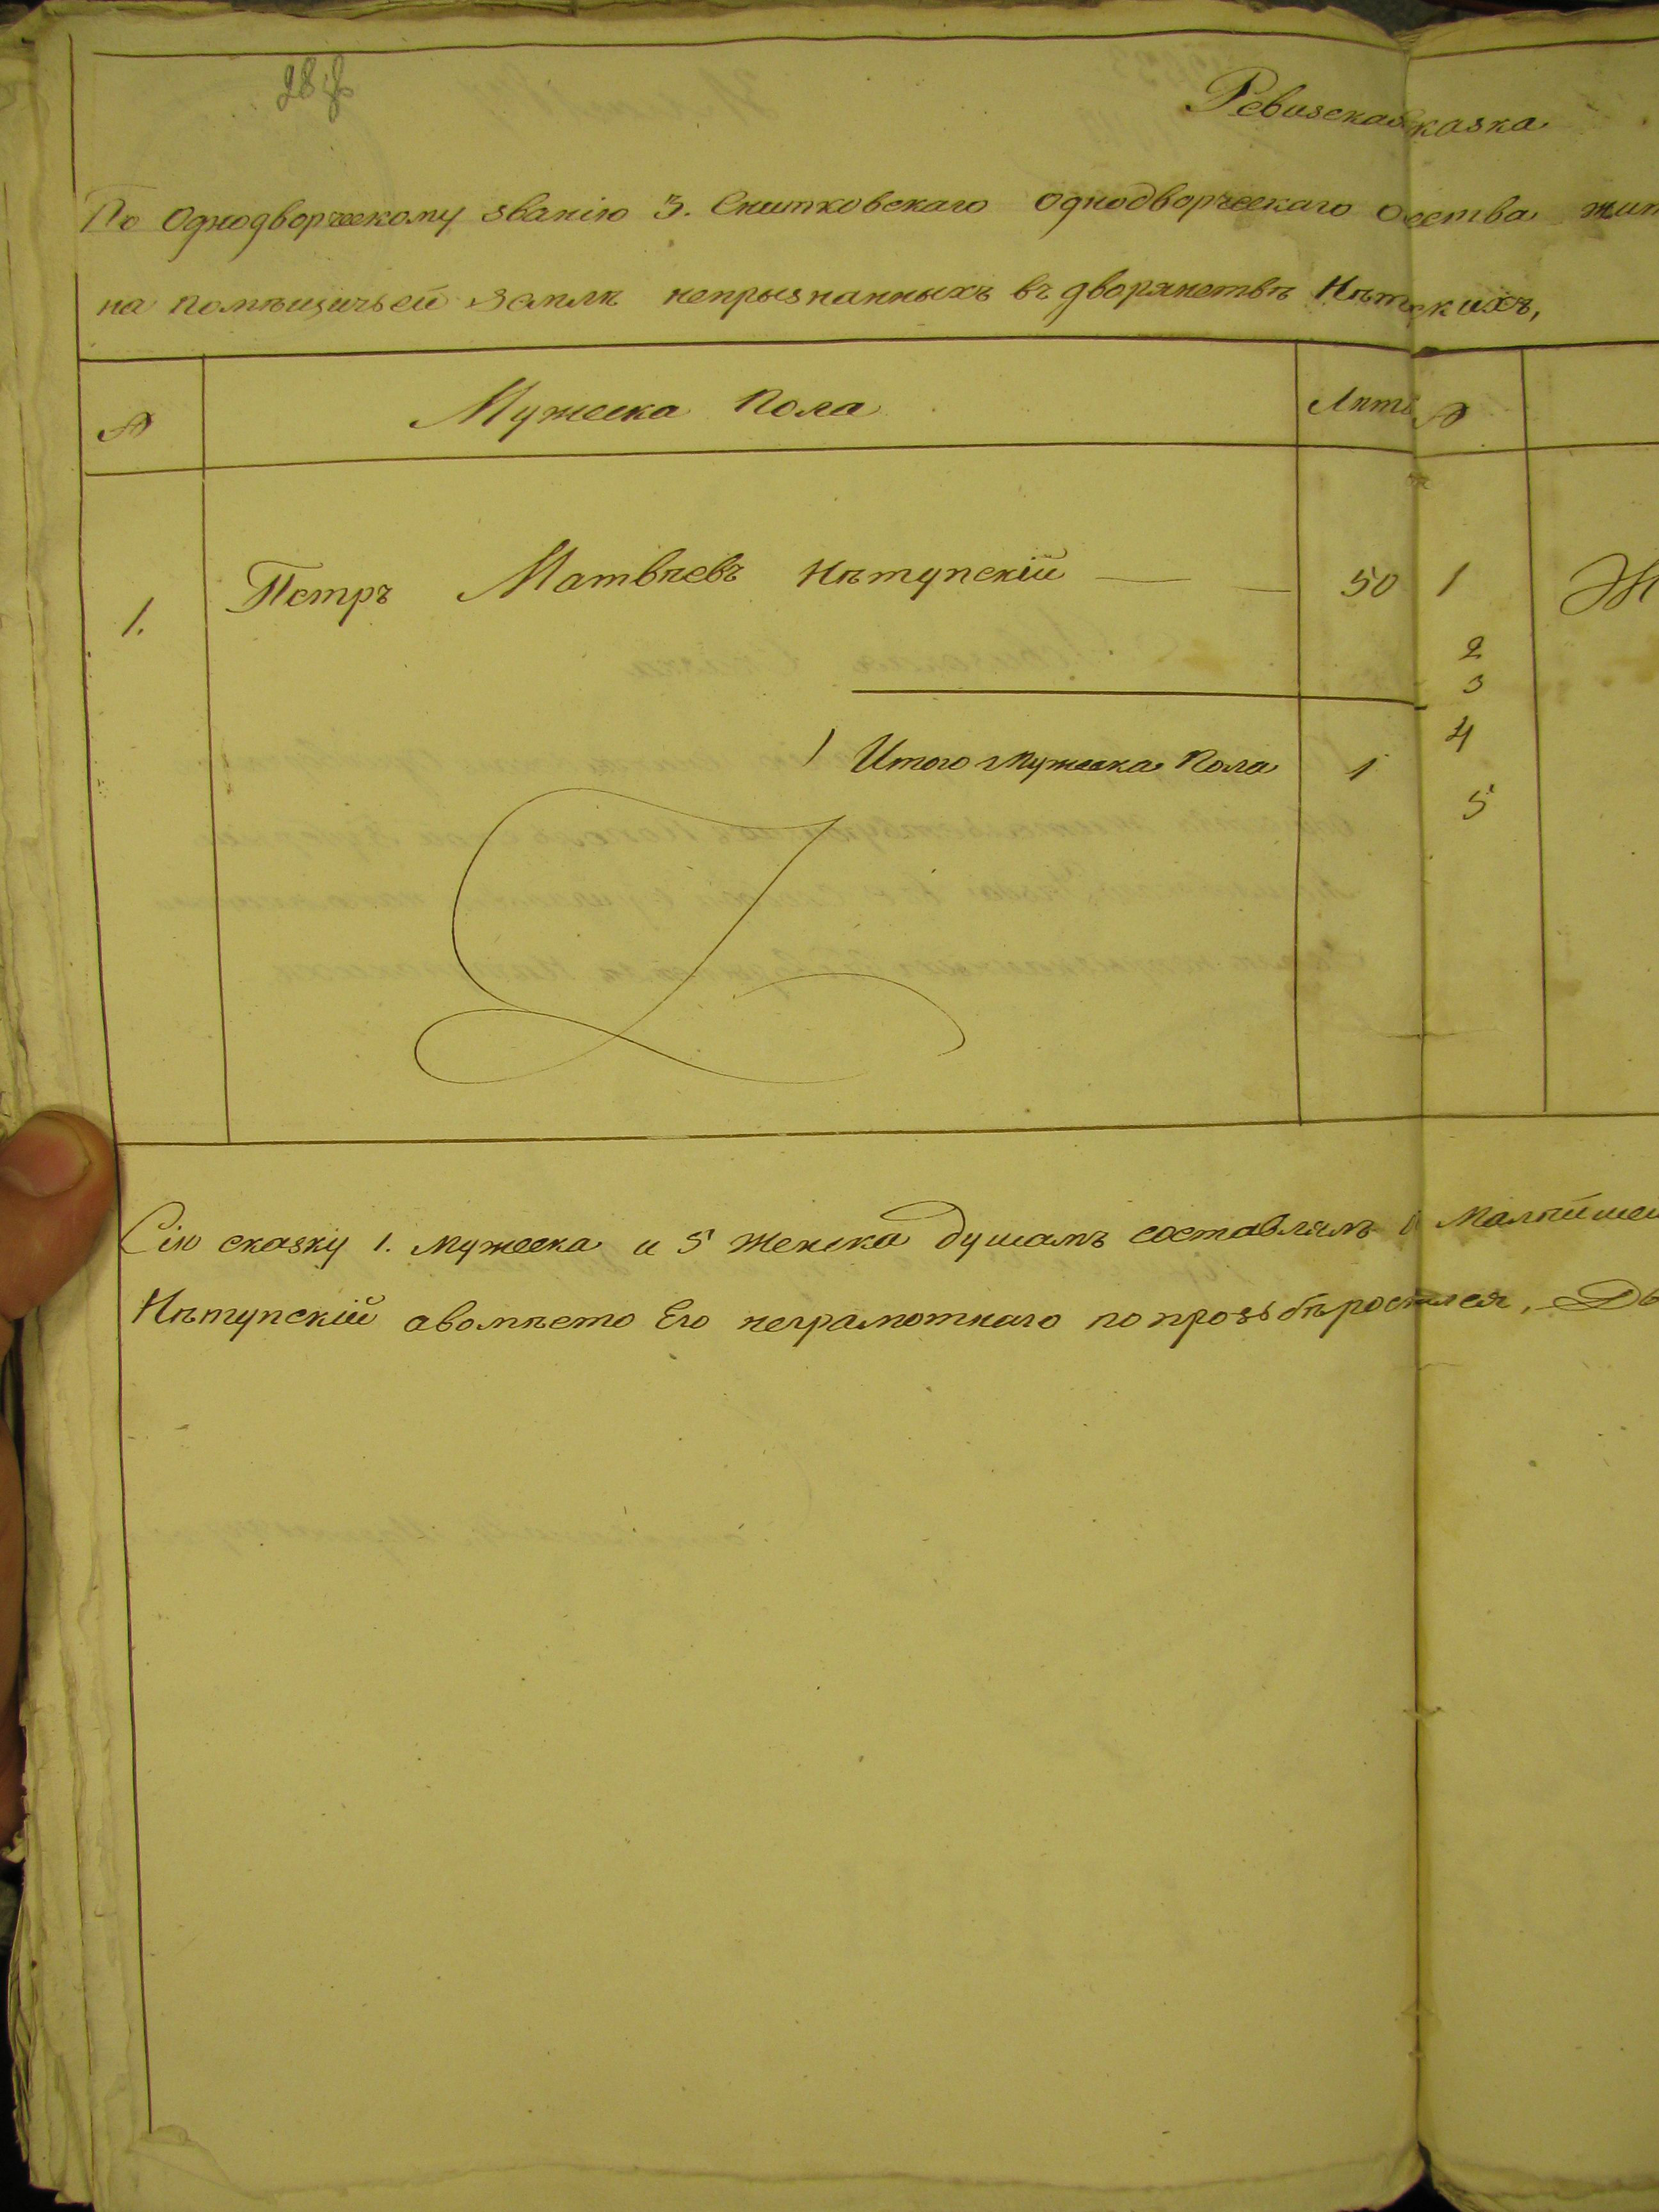 Ревизская сказка
По Однодворческому званію 3. Снитковскаго однодворческаго общества жит
на помѣщичьей землѣ непрызнанныхъ въ дворянствѣ
№ Мужеска Пола Лѣтъ №
1. Петръ Матвѣевъ Нѣтупскій 50 1
2
3
1 Итого Мужеска Пола 1 4
5
Сію сказку 1. Мужеска и 5 Женска душамъ составлялъ
Нѣтупскій авомѣсто Его неграмотнаго по прозьбѣ